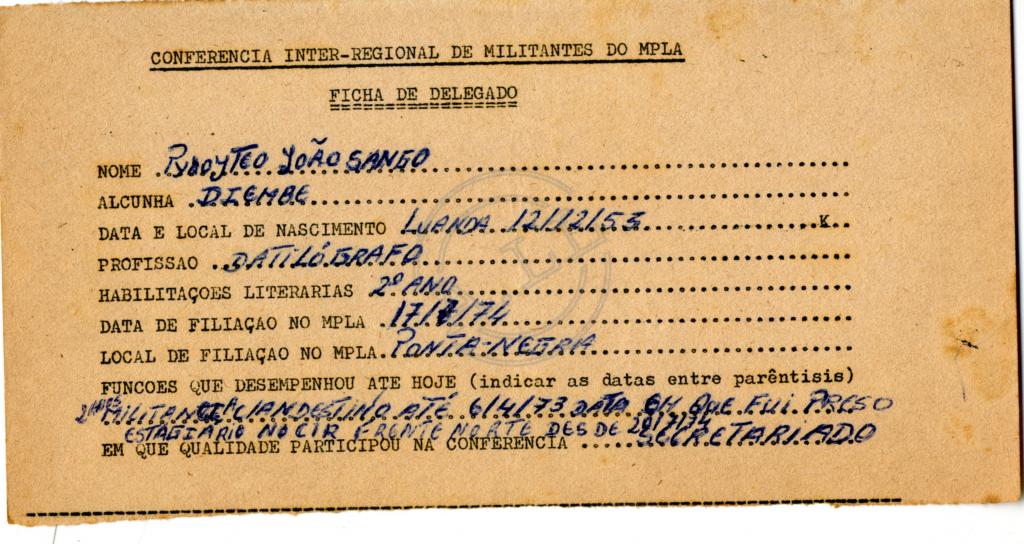 CONFERENCIA INTER-REGIONAL DE MILITANTES DO MPLA
FICHA DE DELEGADO
NOME JOÃO SANGO
ALCUNHA DIEMBE
DATA E LOCAL DE NASCIMENTO LUANDA 12/12/53 K
PROFISSAO DATILÓGRAFO
HABILITAÇOES LITERARIAS 2º ANO
DATA DE FILIAÇAO NO MPLA 17/7/74
LOCAL DE FILIAÇAO NO MPLA. PONTA-NEGRA
FUNCOES QUE DESEMPENHOU ATE HOJE (indicar as datas entre parêntisis)
MILITANTE CLANDESTINO ATÉ 6/4/73 DATA EM QUE FUI PRESO
ESTAGIÁRIO NO CIR FRENTE NORTE DESDE
EM QUE QUALIDADE PARTICIPOU NA CONFERENCIA SECRETARIADO